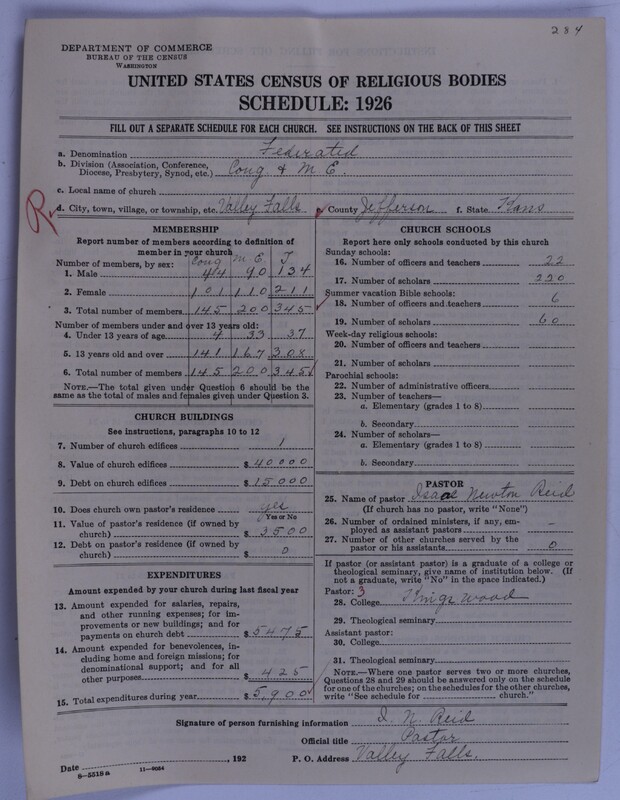 284
DEPARTMENT OF COMMERCE
BUREAU OF THE CENSUS
WASHINGTON
UNITED STATES CENSUS OF RELIGIOUS BODIES
SCHEDULE: 1926
FILL OUT A SEPARATE SCHEDULE FOR EACH CHURCH. SEE INSTRUCTIONS ON THE BACK OF THIS SHEET
a. Denomination Federated
b. Division (Association, Conference, Diocese, Presbytery, Synod, etc.) Cong & M E.
c. Local name of church
R d. City, town, village, or township, etc. Valley Falls County Jefferson f. State Kans
MEMBERSHIP
Report number of members according to definition of
member in your church
Cong M. E. T
Number of members, by sex:
1. Male 44 90 134
2. Female 101 110 211
3. Total number of members 145 200 345
Number of members under and over 13 years old:
4. Under 13 years of age 4 33 37
5. 13 years old and over 141 167 308
6. Total number of members 145 200 345
NOTE.—The total given under Question 6 should be the
same as the total of males and females given under Question 3.
CHURCH BUILDINGS
See instructions, paragraphs 10 to 12
7. Number of church edifices 1
8. Value of church edifices $ 40000
9. Debt on church edifices $ 15000
10. Does church own pastor's residence? yes
Yes or No
11. Value of pastor's residence (if owned by
church) $ 3500
12. Debt on pastor's residence (if owned by
church) $ 0
EXPENDITURES
Amount expended by your church during last fiscal year
13. Amount expended for salaries, repairs,
and other running expenses; for im-
provements or new buildings; and for
payments on church debt $ 5475
14. Amount expended for benevolences, in-
cluding home and foreign missions; for
denominational support; and for all
other purposes $ 425
15. Total expenditures during year $ 5,900
CHURCH SCHOOLS
Report here only schools conducted by this church
Sunday schools:
16. Number of officers and teachers 22
17. Number of scholars 220
Summer vacation Bible schools:
18. Number of officers and teachers 6
19. Number of scholars 60
Week-day religious schools:
20. Number of officers and teachers
21. Number of scholars
Parochial schools:
22. Number of administrative officers
23. Number of teachers—
a. Elementary (grades 1 to 8)
b. Secondary
24. Number of scholars—
a. Elementary (grades 1 to 8)
b. Secondary
PASTOR
25. Name of pastor Isaac Newton Reid
(If church has no pastor, write "None")
26. Number of ordained ministers, if any, em-
ployed as assistant pastors –
27. Number of other churches served by the
pastor or his assistants 0
If pastor (or assistant pastor) is a graduate of a college or
theological seminary, give name of institution below. (If
not a graduate, write "No" in the space indicated.)
Pastor: 3
28. College Kingswood
29. Theological seminary
Assistant pastor:
30. College
31. Theological seminary
NOTE.—Where one pastor serves two or more churches,
Questions 28 and 29 should be answered only on the schedule
for one of the churches; on the schedules for the other churches,
write "See schedule for church."
Signature of person furnishing information I. N. Reid
Official title Pastor
Date , 192 P. O. Address Valley Falls.
8—5518 a 11—9054